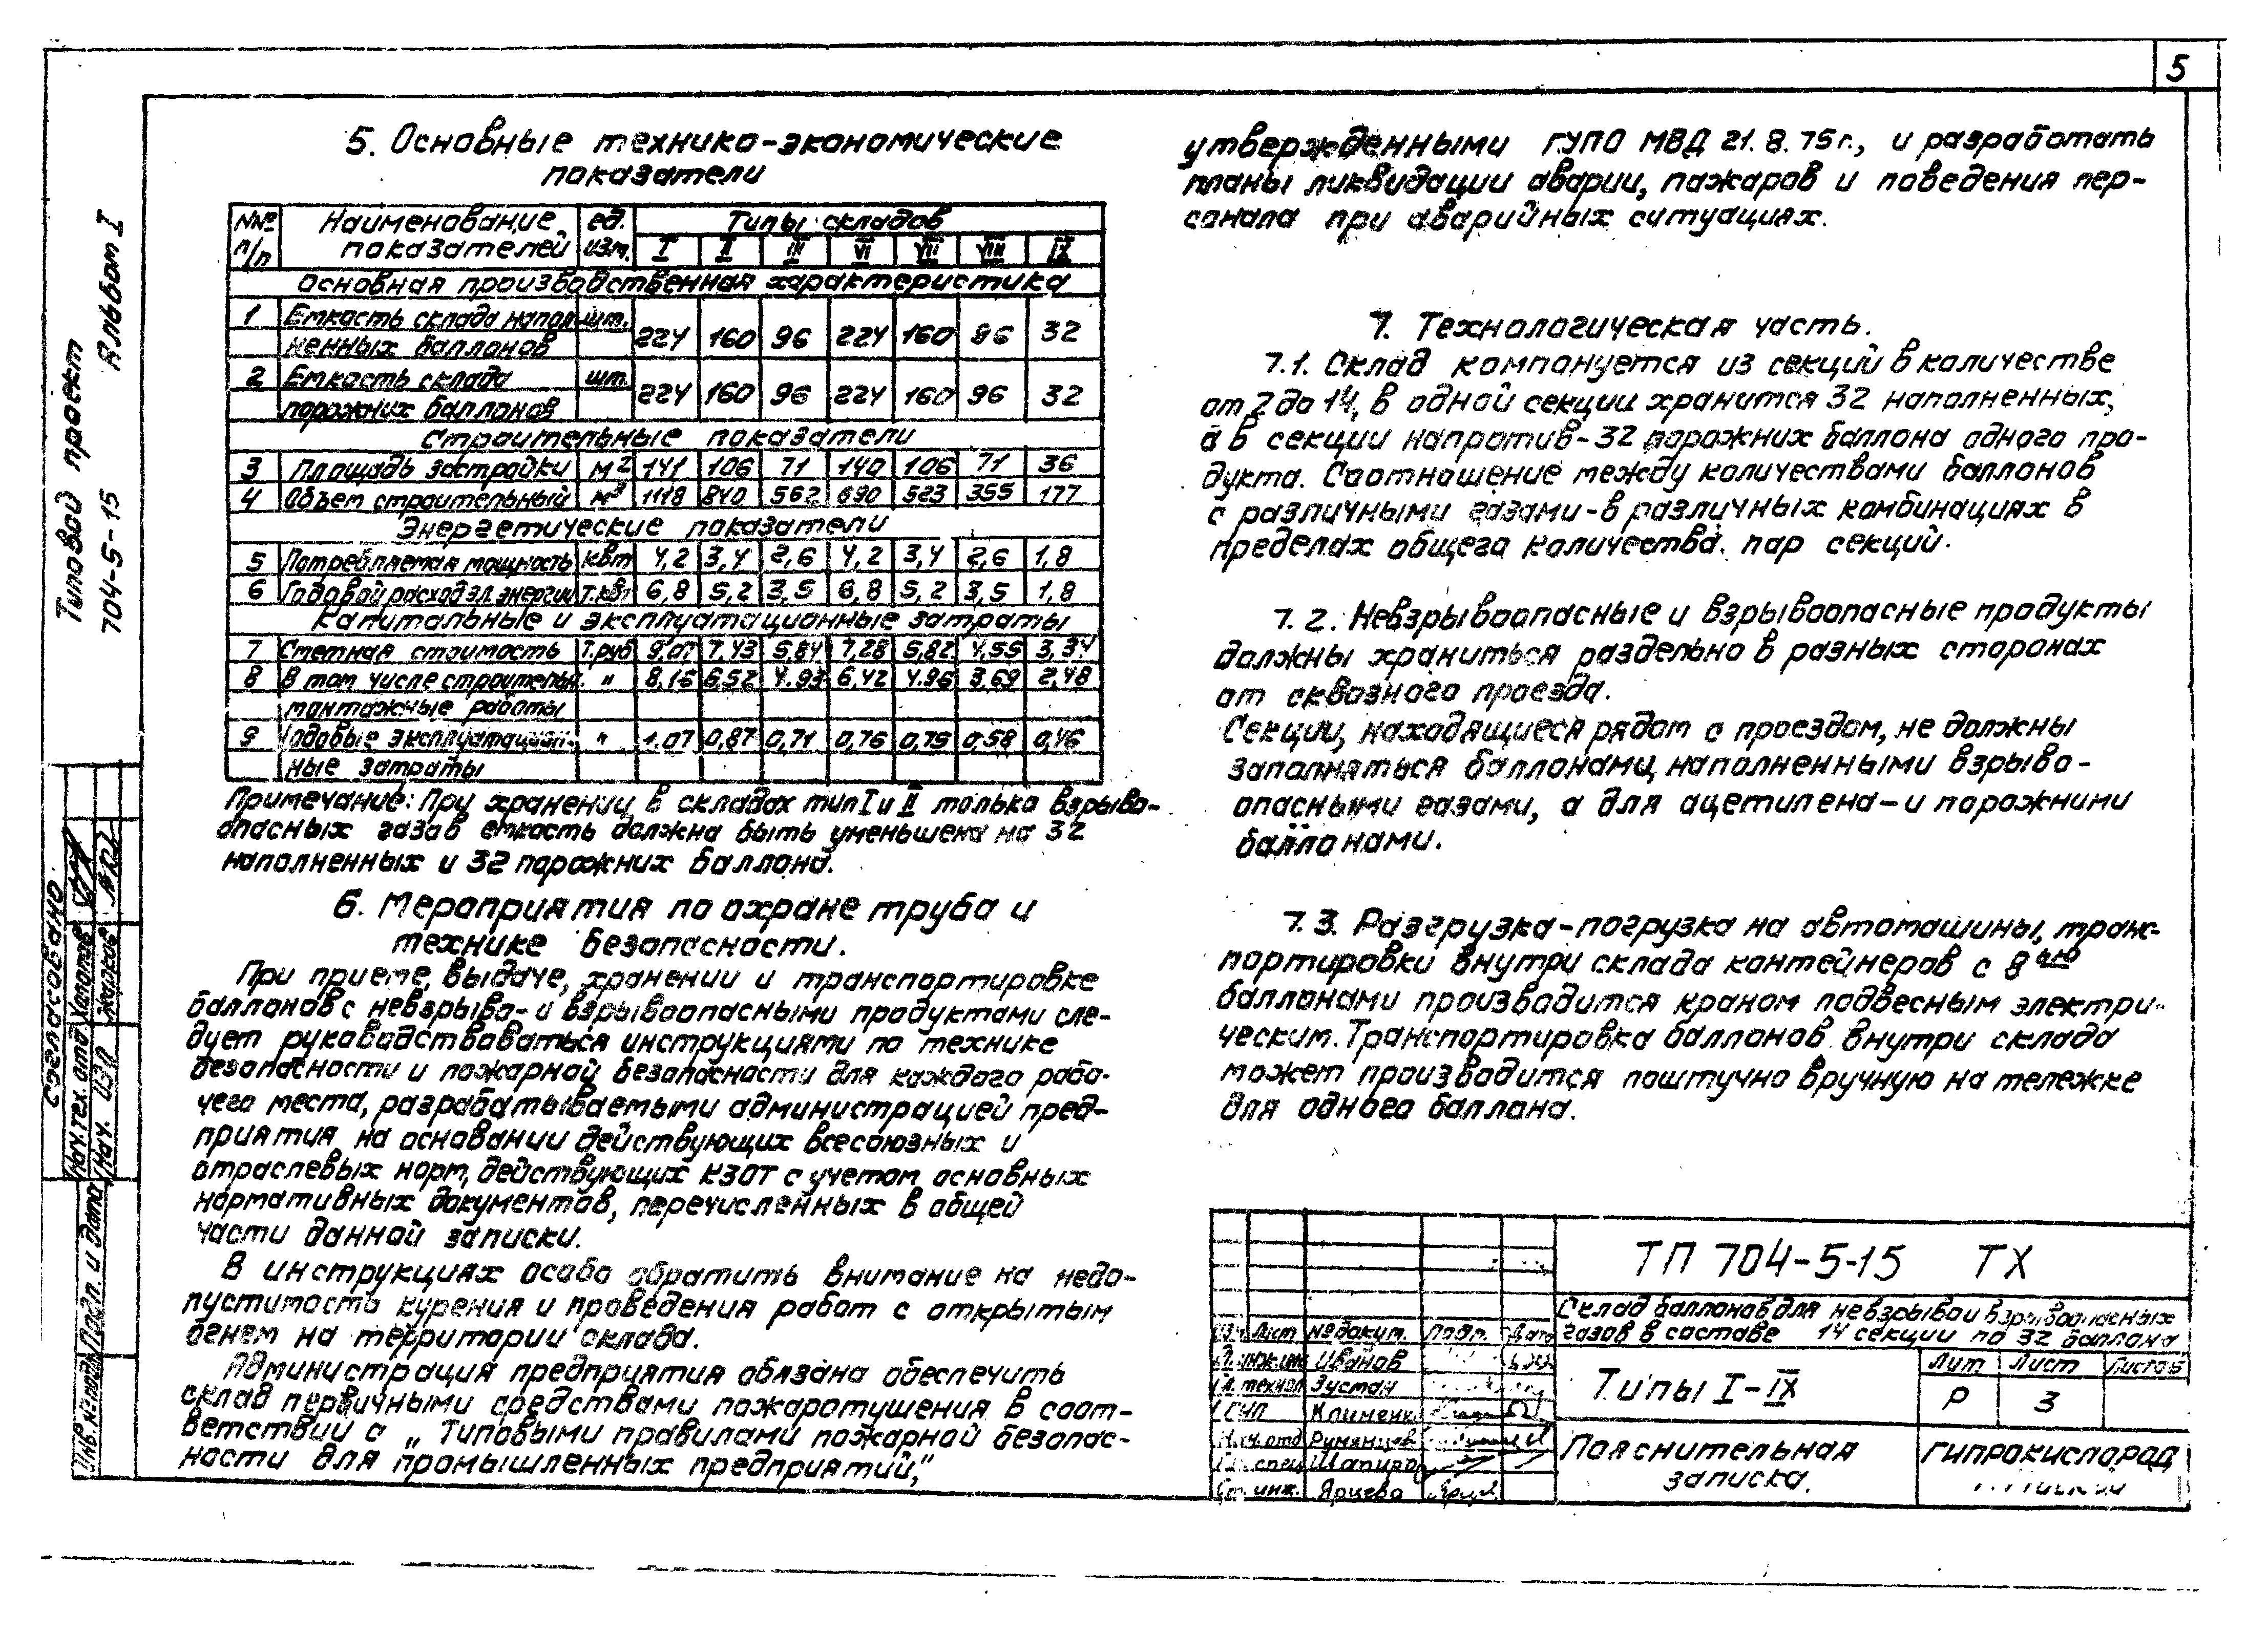 5
Типовой проект
704-5-15 Альбом I
5. Основные технико-экономические
показатели
№№ п/п Наименование показателей ед. изм. Типы складов
I II III VI VII VIII IX
Основная производственная характеристика
1 Емкость склада наполненных баллонов шт. 224 160 96 224 160 96 32
2 Емкость склада порожних баллонов шт. 224 160 96 224 160 96 32
Строительные показатели
3 Площадь застройки м² 141 106 71 140 106 71 36
4 Объем строительный м³ 1118 840 562 690 523 355 177
Энергетические показатели
5 Потребляемая мощность квт 4,2 3,4 2,6 4,2 3,4 2,6 1,8
6 Годовой расход эл. энергии т.квт 6,8 5,2 3,5 6,8 5,2 3,5 1,8
Капитальные и эксплуатационные затраты
7 Сметная стоимость т.руб 9,07 7,43 5,84 7,28 5,82 4,55 3,34
8 В том числе строительн. " 8,16 6,52 4.93 6,42 4.96 3,69 2,48
монтажные работы
9 Годовые эксплуатацион- " 1,07 0,87 0,71 0,76 0,75 0,58 0,46
ные затраты
Примечание: При хранении в складах тип I и II только взрыво-
опасных газов емкость должна быть уменьшена на 32
наполненных и 32 порожних баллона.
6. Мероприятия по охране труба и
технике безопасности.
При приеме, выдаче, хранении и транспортировке
баллонов с невзрыво- и взрывоопасными продуктами сле-
дует руководствоваться инструкциями по технике
безопасности и пожарной безопасности для каждого рабо-
чего места, разрабатываемыми администрацией пред-
приятия на основании действующих всесоюзных и
отраслевых норм, действующих КЗОТ с учетом основных
нормативных документов, перечисленных в общей
части данной записки.
В инструкциях особо обратить внимание на недо-
пустимость курения и проведения работ с открытым
огнем на территории склада.
Администрация предприятия обязана обеспечить
склад первичными средствами пожаротушения в соот-
ветствии с „Типовыми правилами пожарной безопас-
ности для промышленных предприятий,"
утвержденными ГУПО МВД 21. 8. 75 г., и разработать
планы ликвидации аварии, пажаров и поведения пер-
сонала при аварийных ситуациях.
7. Технологическая часть.
7.1. Склад компонуется из секций в количестве
от 2 до 14, в одной секции хранится 32 наполненных,
а в секции напротив - 32 порожних баллона одного про-
дукта. Соотношение между количествами баллонов
с различными газами - в различных комбинациях в
пределах общего количества пар секций.
7.2. Невзрывоопасные и взрывоопасные продукты
должны храниться раздельно в разных сторонах
от сквозного проезда.
Секции, находящиеся рядом с проездом, не должны
заполняться баллонами, наполненными взрыво-
опасными газами, а для ацетилена - и порожними
баллонами.
7.3. Разгрузка-погрузка на автомашины, транс-
портировки внутри склада контейнеров с 8ᵐᵘ
баллонами производится краном подвесным электри-
ческим. Транспортировка баллонов внутри склада
может производится поштучно вручную на тележке
для одного баллона.
Согласовано:
Нач. тех. отд Холопов
Нач. ОЭП Жарков
Подп. и дата
Инв. № подл.
ТП 704-5-15 ТХ
Склад баллонов для невзрыво и взрывоопасных
газов в составе 14 секции по 32 баллона
Изм Лист № докум. Подп. Дата
Гл. инж. Иванов
Гл. технол Зустан
ГИП Клименко
Нач. отд Румянцев
Гл. спец Шапиро
Ст. инж. Ярцева
Типы I-IX
Лит Лист Листов
Р 3
Пояснительная
записка.
ГИПРОКИСЛОРОД